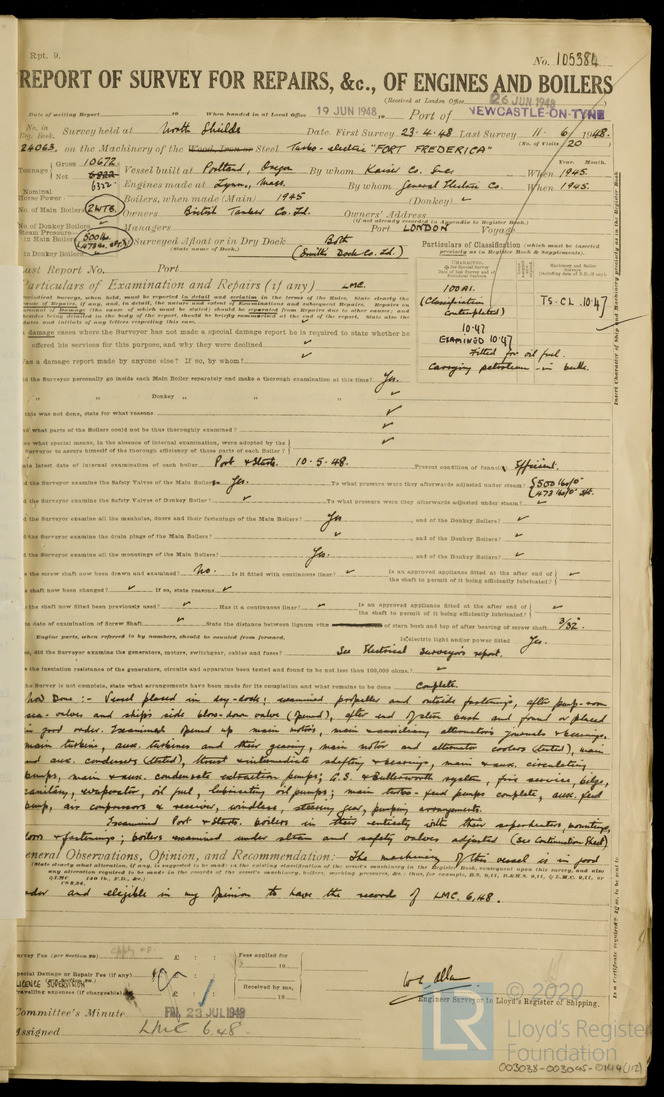 Rpt. 9.
No. 105384
REPORT OF SURVEY FOR REPAIRS, &c., OF ENGINES AND BOILERS
(Received at London Office 26 JUN 1948
Date of writing Report 19 When handed in at Local Office 19 JUN 1948 Port of NEWCASTLE-ON-TYNE
No. in Reg. Book. Survey held at North Shields Date, First Survey 23.4.48 Last Survey 11. 6. 1948.
24063. on the Machinery of the Wood, Iron or Steel Turbo-electric "FORT FREDERICA" (No. of Visits 20)
Tonnage Gross 10672. Vessel built at Portland, Oregon By whom Kaiser Co. Inc. When 1945.
Net 6322. Engines made at Lynn, Mass. By whom General Electric Co. When 1945.
Nominal Horse Power Boilers, when made (Main) 1945 (Donkey) ✓
No. of Main Boilers 2WTB. Owners British Tanker Co. Ld. Owners' Address
(if not already recorded in Appendix to Register Book.)
No. of Donkey Boilers ✓ Managers Port LONDON Voyage
Steam Pressure in Main Boilers 500 lb. Surveyed Afloat or in Dry Dock Both
in Donkey Boilers ✓ (State name of Dock.) (Smith's Dock Co. Ld.)
Particulars of Classification (which must be inserted precisely as in Register Book & Supplements).
Last Report No. Port
Particulars of Examination and Repairs (if any) LMC.
100A1.
(Classification contemplated)
10.47
EXAMINED 10.47
TS.CL. 10.47
Fitted for oil fuel.
Carrying petroleum in bulk.
Did the Surveyor personally go inside each Main Boiler separately and make a thorough examination at this time? Yes.
" " Donkey " " " ✓
If this was not done, state for what reasons ✓
And what parts of the Boilers could not be thus thoroughly examined? ✓
State latest date of internal examination of each boiler Port & Starb. 10.5.48. Present condition of funnel Efficient.
Did the Surveyor examine the Safety Valves of the Main Boilers? Yes. To what pressure were they afterwards adjusted under steam? 500 lb/□"
Did the Surveyor examine the Safety Valves of Donkey Boiler? ✓ To what pressure were they afterwards adjusted under steam? ✓
Did the Surveyor examine all the manholes, doors and their fastenings of the Main Boilers? Yes. and of the Donkey Boilers? ✓
Did the Surveyor examine the drain plugs of the Main Boilers? ✓ and of the Donkey Boilers? ✓
Did the Surveyor examine all the mountings of the Main Boilers? Yes. and of the Donkey Boilers? ✓
Has the screw shaft now been drawn and examined? No. Is it fitted with continuous liner? ✓ Is an approved appliance fitted at the after end of the shaft to permit of it being efficiently lubricated? ✓
Has shaft now been changed? ✓ If so, state reasons ✓
Has the shaft now fitted been previously used? ✓ Has it a continuous liner? ✓ Is an approved appliance fitted at the after end of the shaft to permit of it being efficiently lubricated? ✓
State date of examination of Screw Shaft ✓ State the distance between lignum vitæ of stern bush and top of after bearing of screw shaft 3/32"
Engine parts, when referred to by numbers, should be counted from forward. Is electric light and/or power fitted Yes.
If so, did the Surveyor examine the generators, motors, switchgear, cables and fuses? See Electrical Surveyor's report.
Has the insulation resistance of the generators, circuits and apparatus been tested and found to be not less than 100,000 ohms? ✓
If the Survey is not complete, state what arrangements have been made for its completion and what remains to be done Complete.
Now Done :- Vessel placed in dry-dock; examined propeller and outside fastenings, after pump-room
sea-valves and ship's side blow-down valve (opened), after end of stern bush and found or placed
in good order. Examined opened up main motors, main & auxiliary alternators journals & bearings,
main turbine, aux. turbines and their gearing, main motor and alternator coolers (tested), main
and aux. condensers (tested), thrust & intermediate shafting & bearings, main & aux. circulating
pumps, main & aux. condensate extraction pumps; G.S. & Butterworth system, fire service, bilge,
sanitary, evaporator, oil fuel, lubricating oil pumps; main turbo-feed pumps complete, aux. feed
pump, air compressors & receiver, windlass, steering gear, pumping arrangements.
Examined Port & Starb. boilers in their entirety with their superheaters, mountings,
doors & fastenings; boilers examined under steam and safety valves adjusted (See Continuation Sheet)
General Observations, Opinion, and Recommendation:- The machinery of this vessel is in good
order and eligible in my opinion to have the records of LMC. 6.48.
Survey Fee (per Section 29) £ : : Fees applied for 19
Special Damage or Repair Fee (if any) (per Section 29.)
LICENCE SUPERVISION
Travelling expenses (if chargeable) £ : : Received by me, 19
Engineer Surveyor to Lloyd's Register of Shipping.
Committee's Minute FRI. 23 JUL 1948
Assigned LMC 6.48.
© 2020
LR
Lloyd's Register
Foundation
003038-003045-0144 (1/2)